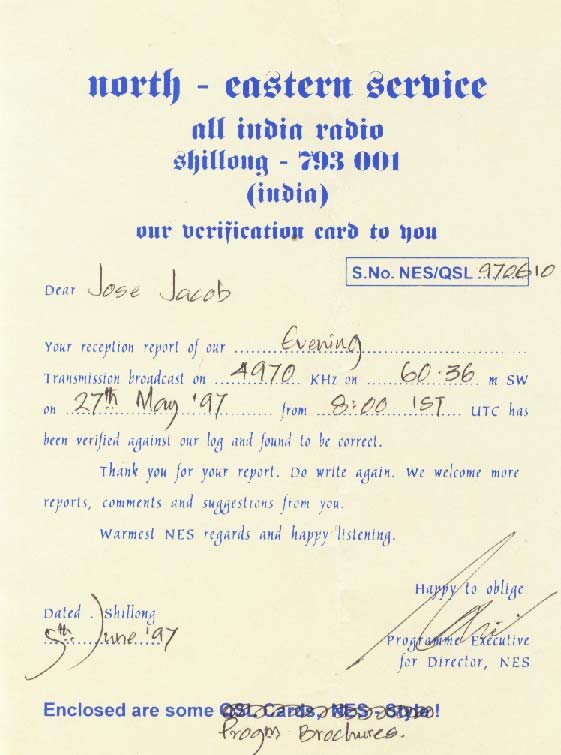 north - eastern service
all india radio
shillong - 793 001
(india)
our verification card to you
S.No. NES/QSL 970610
Dear Jose Jacob
Your reception report of our Evening
Transmission broadcast on 4970 KHz on 60.36 m SW
on 27th May '97 from 8:00 IST UTC has
been verified against our log and found to be correct.
Thank you for your report. Do write again. We welcome more
reports, comments and suggestions from you.
Warmest NES regards and happy listening.
Happy to oblige
Dated . Shillong
5th June '97
Programme Executive
for Director, NES
Enclosed are some QSL Cards, NES - Style !
Progm Brochures.